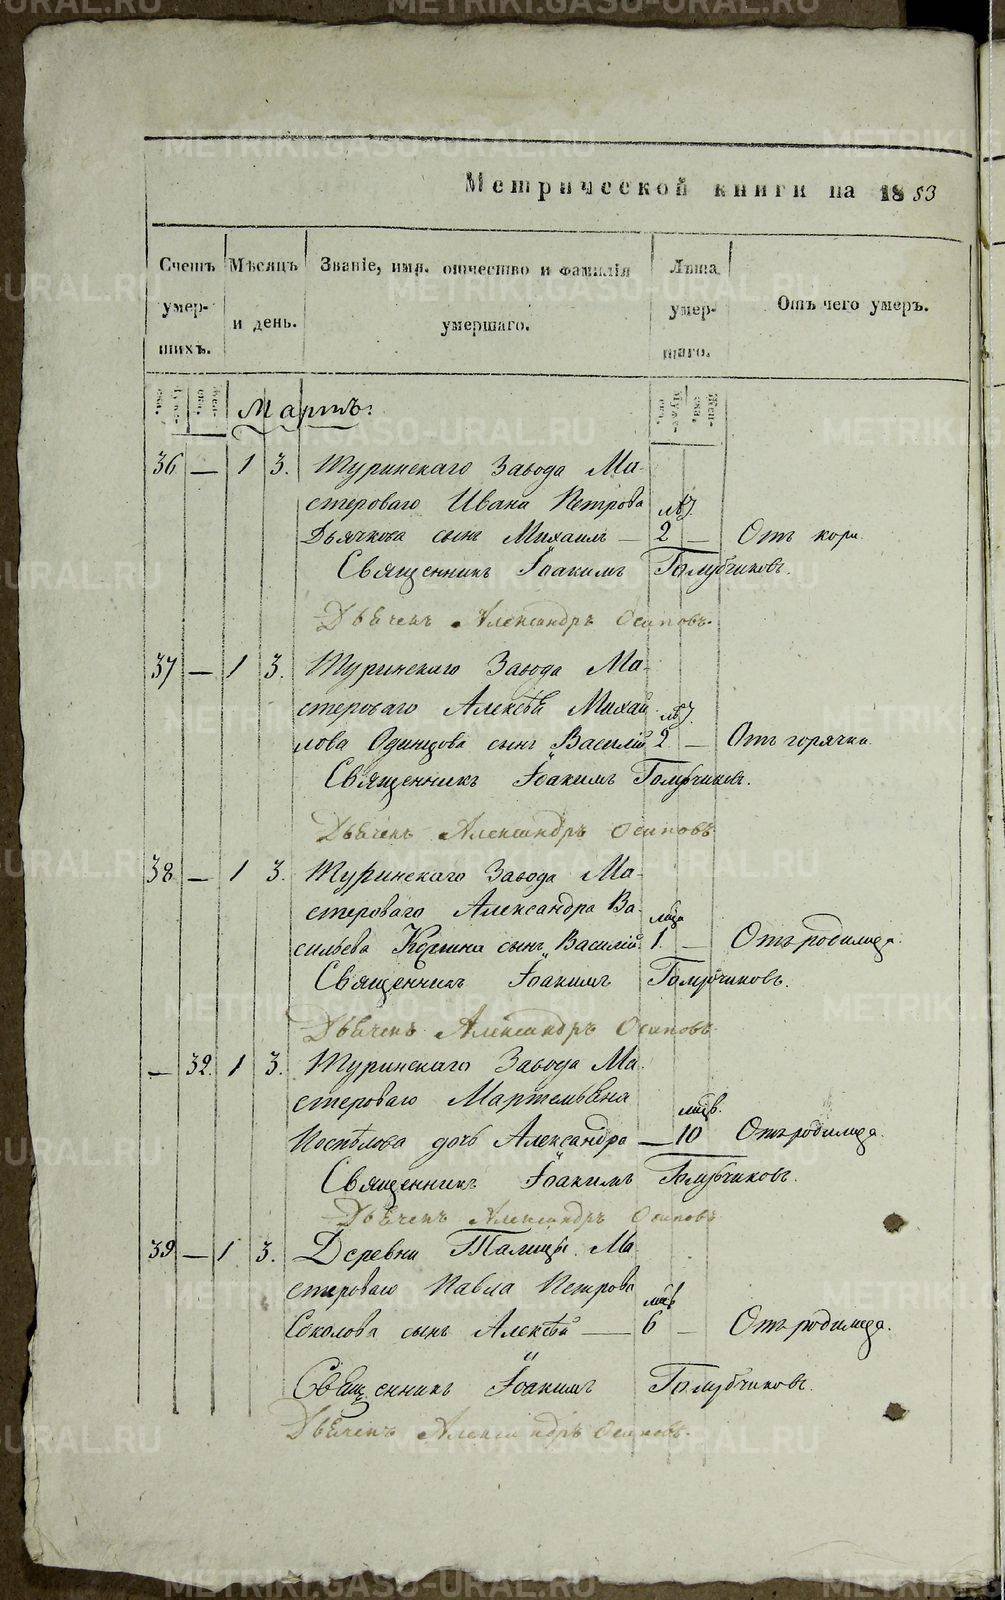 Метрической книги на 1853
Счетъ умер- шихъ.
Мѣсяцъ и день.
Званіе, имя, отчество и фамилія умершаго.
Лѣта умер- шаго.
Отъ чего умеръ.
Мартъ.
36 — 1 3. Туринскаго Завода Ма-
стероваго Ивана Петрова лѣт.
Дьячкова сынъ Михаилъ — 2 — Отъ кори
Священникъ Іоакимъ Голубчиковъ.
Дьячекъ Александръ Осиповъ.
37 — 1 3. Туринскаго Завода Ма-
стероваго Алексѣя Михай лѣт.
лова Одинцова сынъ Василій 2 — Отъ горячки
Священникъ Іоакимъ Голубчиковъ.
Дьячекъ Александръ Осиповъ
38 — 1 3. Туринскаго Завода Ма-
стероваго Александра Ва-
сильева сынъ Василій 1. — Отъ родимца.
Священникъ Іоакимъ Голубчиковъ.
Дьячекъ Александръ Осиповъ.
— 32. 1 3. Туринскаго Завода Ма-
стероваго Мартемьяна
Поспѣлова дочь Александра — 10 Отъ родимца.
Священникъ Іоакимъ Голубчиковъ.
Дьячекъ Александръ Осиповъ
39 — 1 3. Деревни Талицы Ма-
стероваго Павла Петрова
Соколова сынъ Алексѣй — 6 — Отъ родимца.
Священникъ Іоакимъ Голубчиковъ.
Дьячекъ Александръ Осиповъ.
METRIKI.GASO-URAL.RU